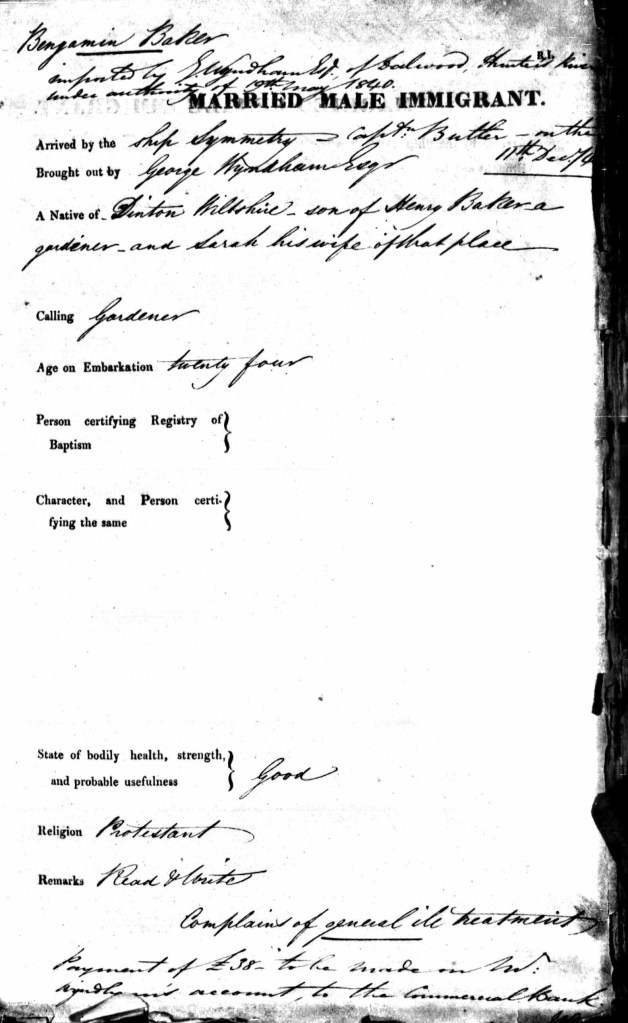 Benjamin Baker
imported by G Wyndham Esqr. of Dalwood, Hunters River
B.I.
under authority of 19th May 1840.
MARRIED MALE IMMIGRANT.
Arrived by the ship Symmetry – Captn. Butler – on the
11th Dec
Brought out by George Wyndham Esqr
A Native of Dinton Wiltshire – son of Henry Baker – a
gardener – and Sarah his wife of that place
Calling Gardener
Age on Embarkation twenty four
Person certifying Registry of
Baptism
Character, and Person certi-
fying the same
State of bodily health, strength,
and probable usefulness } Good
Religion Protestant
Remarks Read & Write
Complains of general ill treatment
Payment of £38 – to be made on Mr.
Wyndham's account, to the Commercial Bank